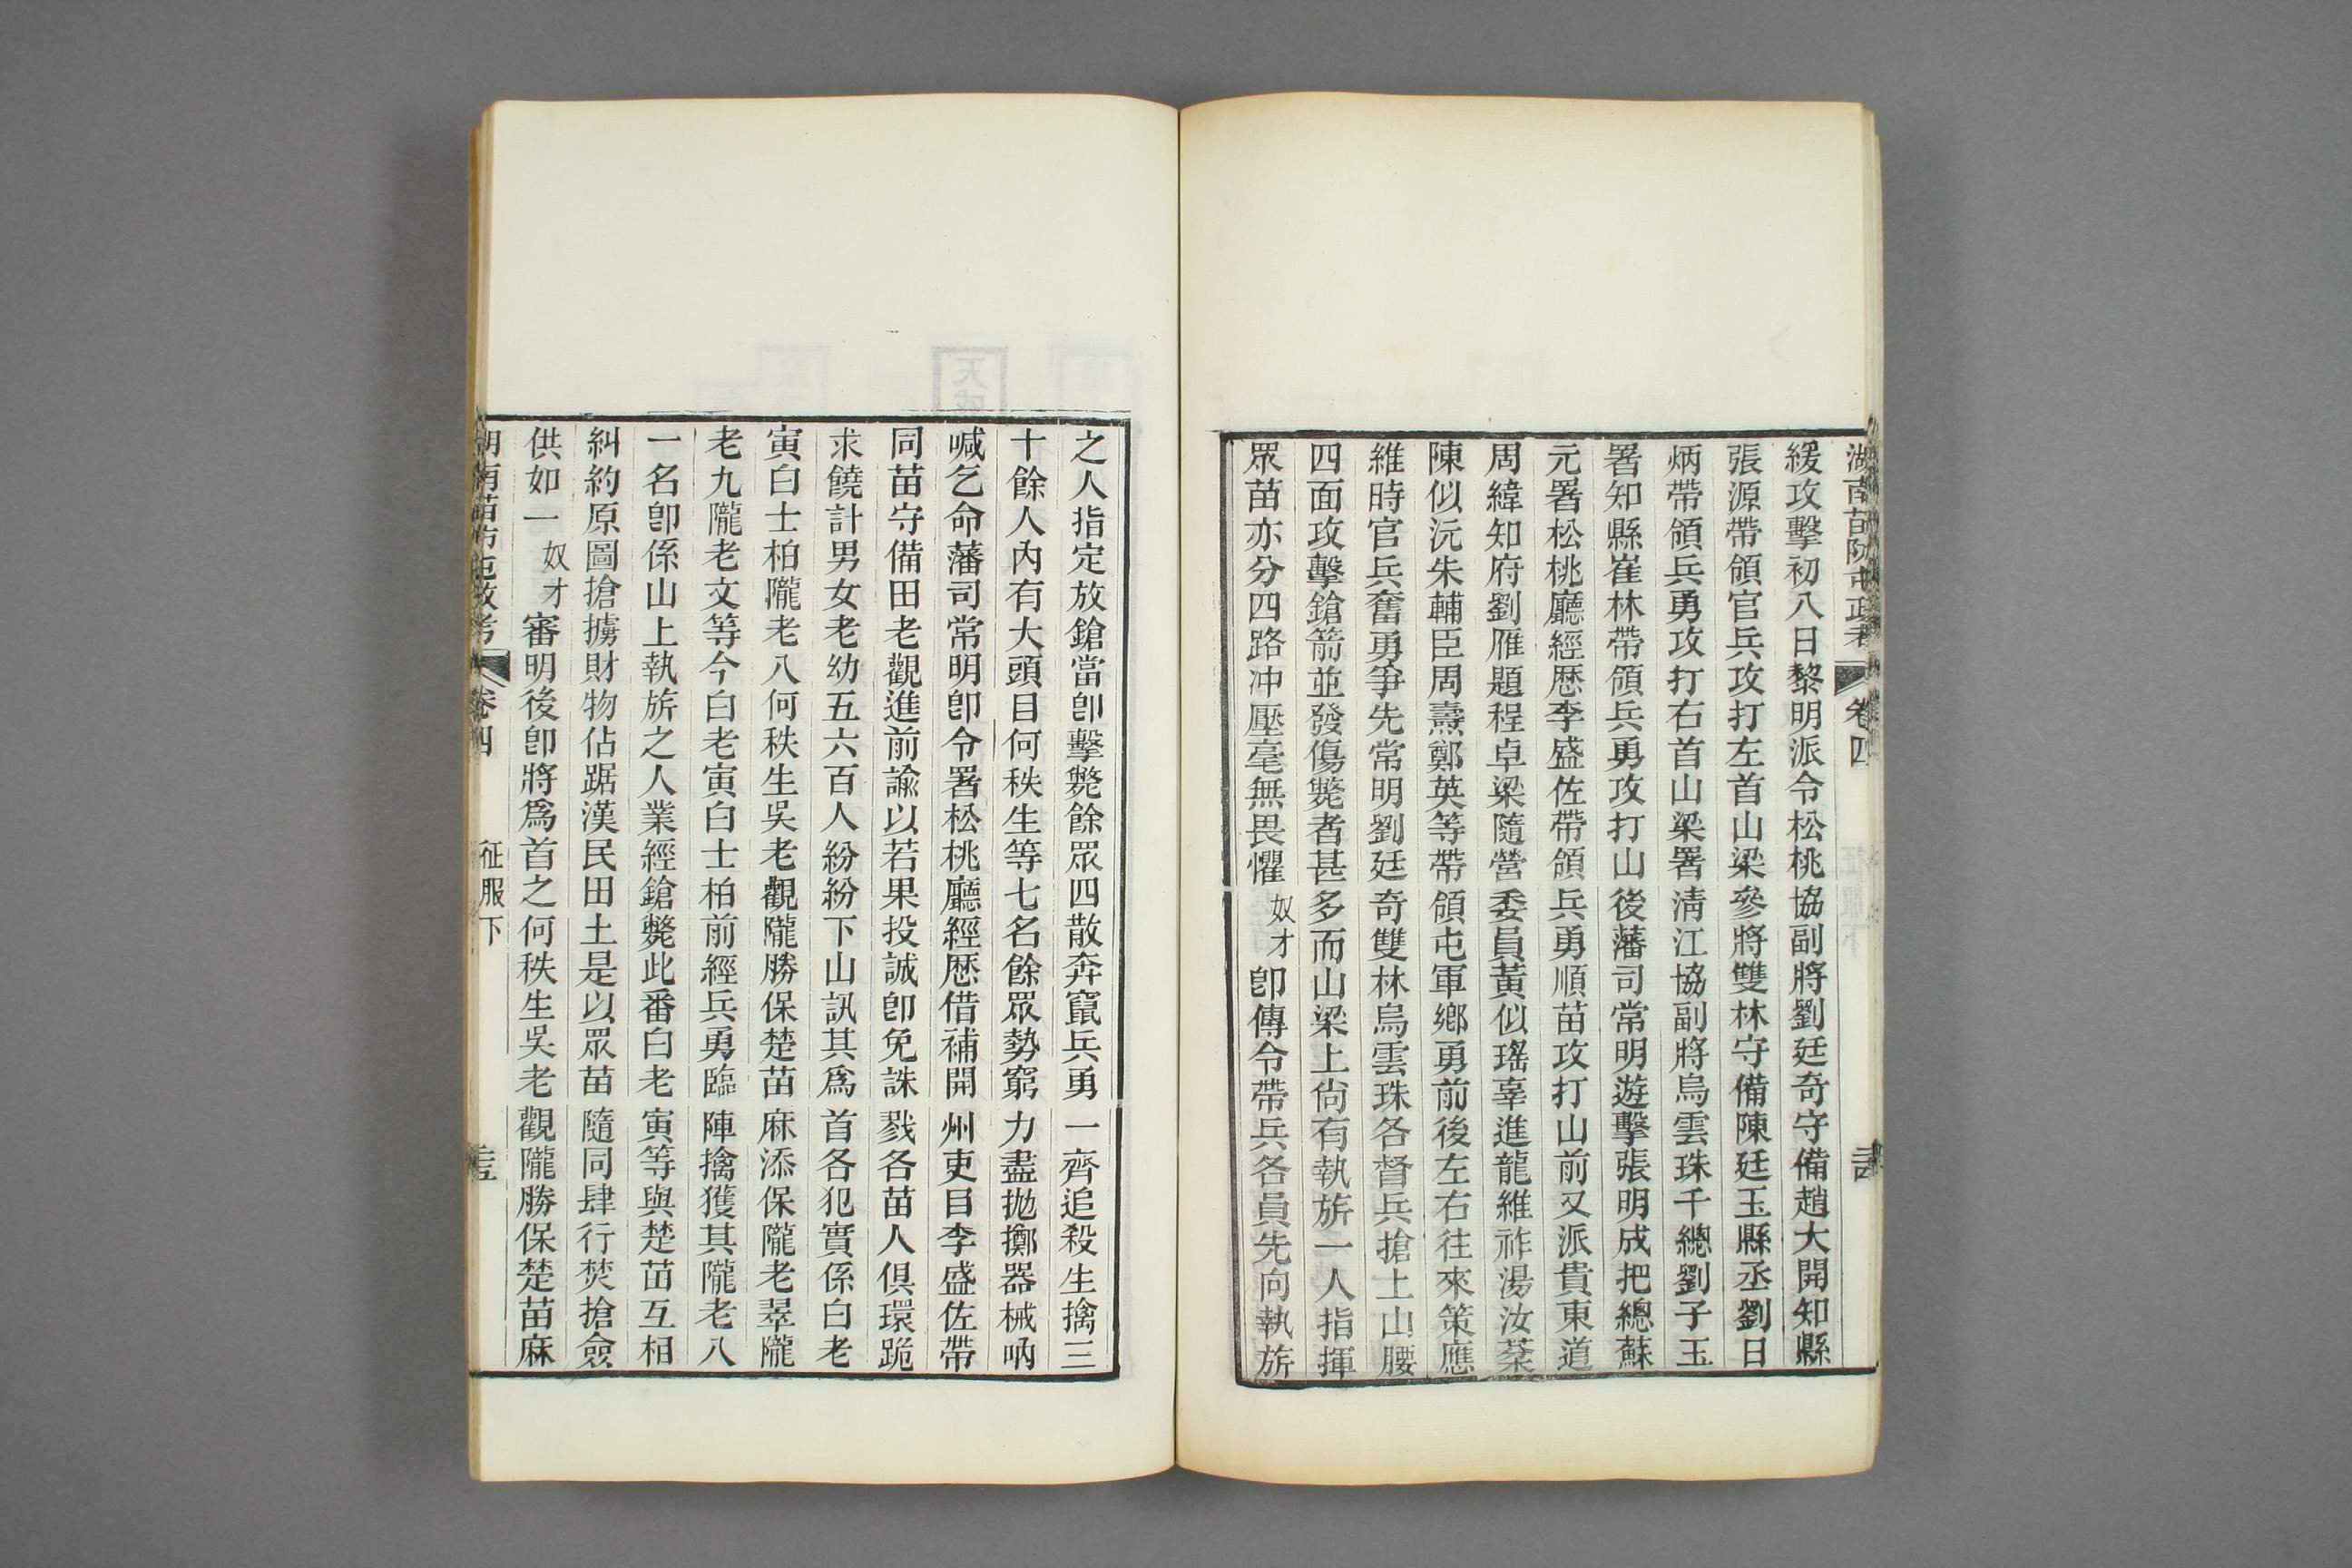 湖南苗防屯政考 卷四
緩攻擊初八日黎明派令松桃協副將劉廷奇守備趙大開知縣
張源帶領官兵攻打左首山梁參將雙林守備陳廷玉縣丞劉日
炳帶領兵勇攻打右首山梁署清江協副將烏雲珠千總劉子玉
署知縣崔林帶領兵勇攻打山後藩司常明遊擊張明成把總蘇
元署松桃廳經歷李盛佐帶領兵勇順苗攻打山前又派貴東道
周緯知府劉雁題程卓梁隨營委員黃似瑤辜進龍維祚湯汝棻
陳似沅朱輔臣周壽鄭英等帶領屯軍鄉勇前後左右往來策應
維時官兵奮勇爭先常明劉廷奇雙林烏雲珠各督兵搶上山腰
四面攻擊鎗箭並發傷斃者甚多而山梁上尙有執旂一人指揮
眾苗亦分四路冲壓毫無畏懼奴才卽傳令帶兵各員先向執旂
之人指定放鎗當卽擊斃餘眾四散奔竄兵勇一齊追殺生擒三
十餘人內有大頭目何秩生等七名餘眾勢窮力盡拋擲器械吶
喊乞命藩司常明卽令署松桃廳經歷借補開州吏目李盛佐帶
同苗守備田老觀進前諭以若果投誠卽免誅戮各苗人俱環跪
求饒計男女老幼五六百人紛紛下山訊其爲首各犯實係白老
寅白士柏隴老八何秩生吳老觀隴勝保楚苗麻添保隴老翠隴
老九隴老文等今白老寅白士柏前經兵勇臨陣擒獲其隴老八
一名卽係山上執旂之人業經鎗斃此番白老寅等與楚苗互相
糾約原圖搶擄財物佔踞漢民田土是以眾苗隨同肆行焚搶僉
供如一奴才審明後卽將爲首之何秩生吳老觀隴勝保楚苗麻
湖南苗防屯政考 卷四 征服下